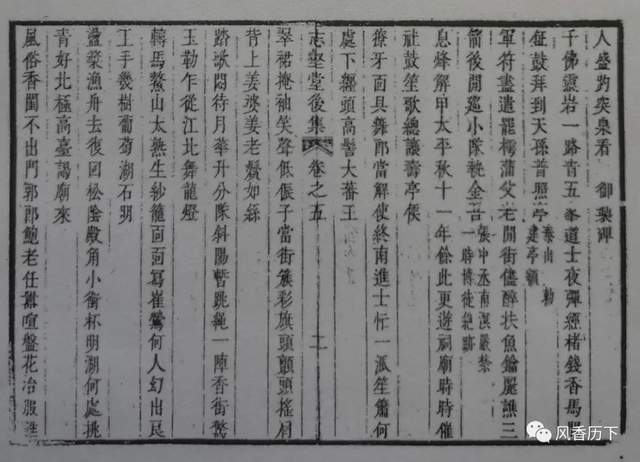 人盛趵突泉看 御製碑
千佛靈岩一路青五峯道士夜彈經楮錢香馬
鉦鼓拜到天孫普照亭
泰山勅
建亭額
軍符盡遣罷樗蒲父老閒街儘醉扶魚鑰麗譙三
箭後開筵小隊執金吾
張中丞南溟嚴禁
一時博徒絶跡
息烽解甲太平秋十一年餘此更遊祠廟時時催
社鼓笙歌總讓壽亭侯
獠牙面具舞郎當解使終南進士忙一派笙簫何
處下纏頭高髻大蕃王
志壑堂後集 卷之五 二
翠裙掩袖笑聲低侲子當街簇彩旗頭顫頭搖肩
背上姜婆姜老鬢如絲
踏歌悶待月華升分隊斜陽暫跳繩一陣香街驚
玉勒乍從江北舞龍燈
轉馬鰲山太無生紗籠面面寫崔鶯何人幻出良
工手幾樹葡萄湖石明
畫槳漁舟去復回松陰殿角小銜杯明湖何處挑
青好北極高臺謁廟來
風俗香閨不出門郭郎鮑老任囂喧盤花冶服
风香历下